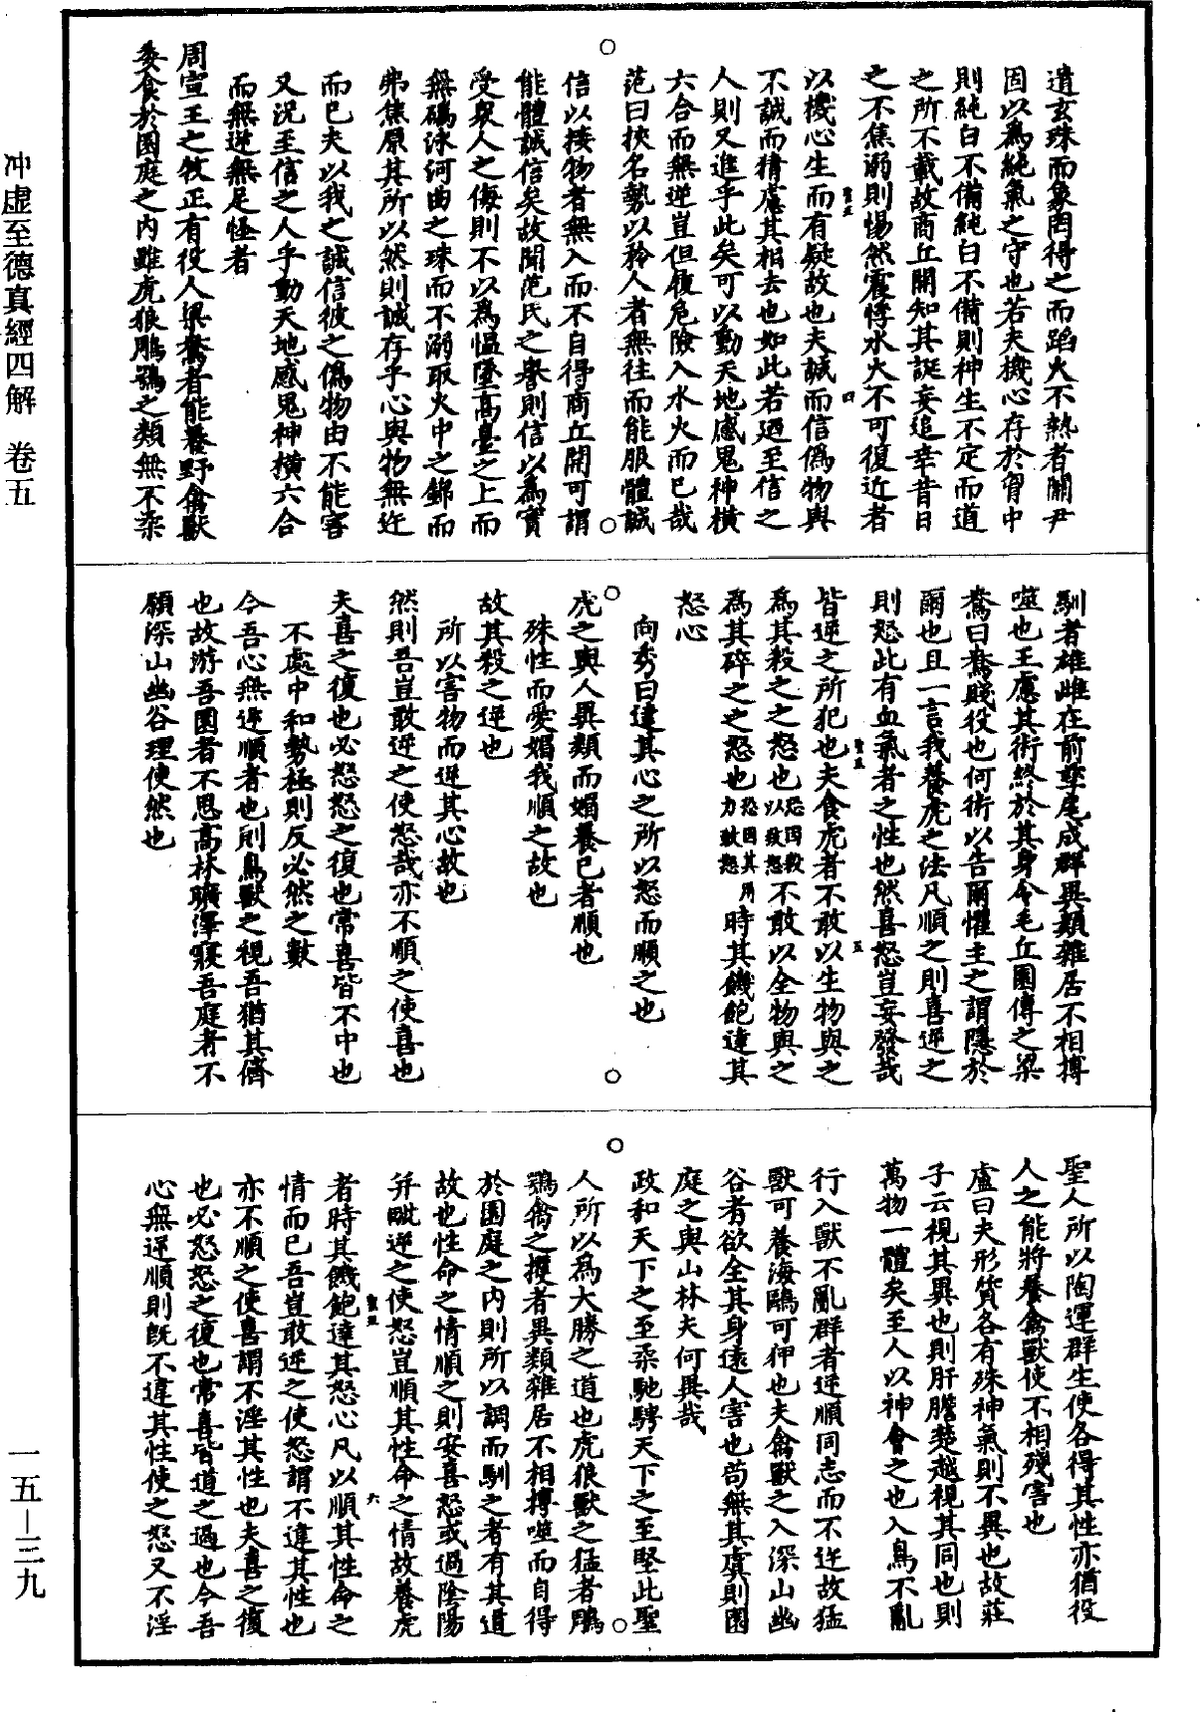 冲虛至德真經四解　卷五
一五—三九
遺玄珠而象罔得之而蹈火不熱者關尹
固以為純氣之守也若夫機心存於胷中
則純白不備純白不備則神生不定而道
之所不載故商丘開知其誕妄追幸昔日
之不焦溺則惕然震悸水火不可復近者
以機心生而有疑故也夫誠而信偽物與
不誠而猜慮其相去也如此若迺至信之
人則又進乎此矣可以動天地感鬼神橫
六合而無逆豈但履危險入水火而已哉
范曰挾名勢以矜人者無往而能服體誠
信以接物者無入而不自得商丘開可謂
能體誠信矣故聞范氏之譽則信以為實
受眾人之侮則不以為愠墜高臺之上而
無䃣泳河曲之珠而不溺取火中之錦而
弗焦原其所以然則誠存乎心與物無迕
而已夫以我之誠信彼之偽物由不能害
又況至信之人乎動天地感鬼神橫六合
而無逆無足怪者
周宣王之牧正有役人梁鴦者能養野禽獸
委食於園庭之內雖虎狼鵰鶚之類無不柔
馴者雄雌在前孳尾成群異類雜居不相搏
噬也王慮其術終於其身令毛丘園傳之梁
鴦曰鴦賤役也何術以告爾懼王之謂隱於
爾也且一言我養虎之法凡順之則喜逆之
則怒此有血氣者之性也然喜怒豈妄發哉
皆逆之所犯也夫食虎者不敢以生物與之
為其殺之之怒也恐因殺以致怒不敢以全物與之
為其碎之之怒也恐因其用力致怒時其饑飽達其
怒心
向秀曰達其心之所以怒而順之也
虎之與人異類而媚養己者順也
殊性而愛媚我順之故也
故其殺之逆也
所以害物而逆其心故也
然則吾豈敢逆之使怒哉亦不順之使喜也
夫喜之復也必怒怒之復也常喜皆不中也
不處中和勢極則反必然之數
今吾心無逆順者也則鳥獸之視吾猶其儕
也故游吾園者不思高林曠澤寢吾庭者不
願深山幽谷理使然也
聖人所以陶運群生使各得其性亦猶役
人之能將養禽獸使不相殘害也
盧曰夫形質各有殊神氣則不異也故莊
子云視其異也則肝膽楚越視其同也則
萬物一體矣至人以神會之也入鳥不亂
行入獸不亂群者逆順同志而不迕故猛
獸可養海鷗可狎也夫禽獸之入深山幽
谷者欲全其身遠人害也苟無其虞則園
庭之與山林夫何異哉
政和天下之至柔馳騁天下之至堅此聖
人所以為大勝之道也虎狼獸之猛者鵰
鶚禽之攫者異類雜居不相搏噬而自得
於園庭之內則所以調而馴之者有其道
故也性命之情順之則安喜怒或過陰陽
并毗逆之使怒豈順其性命之情故養虎
者時其饑飽達其怒心凡以順其性命之
情而已吾豈敢逆之使怒謂不違其性也
亦不順之使喜謂不淫其性也夫喜之復
也必怒怒之復也常喜皆道之過也今吾
心無逆順則既不違其性使之怒又不淫